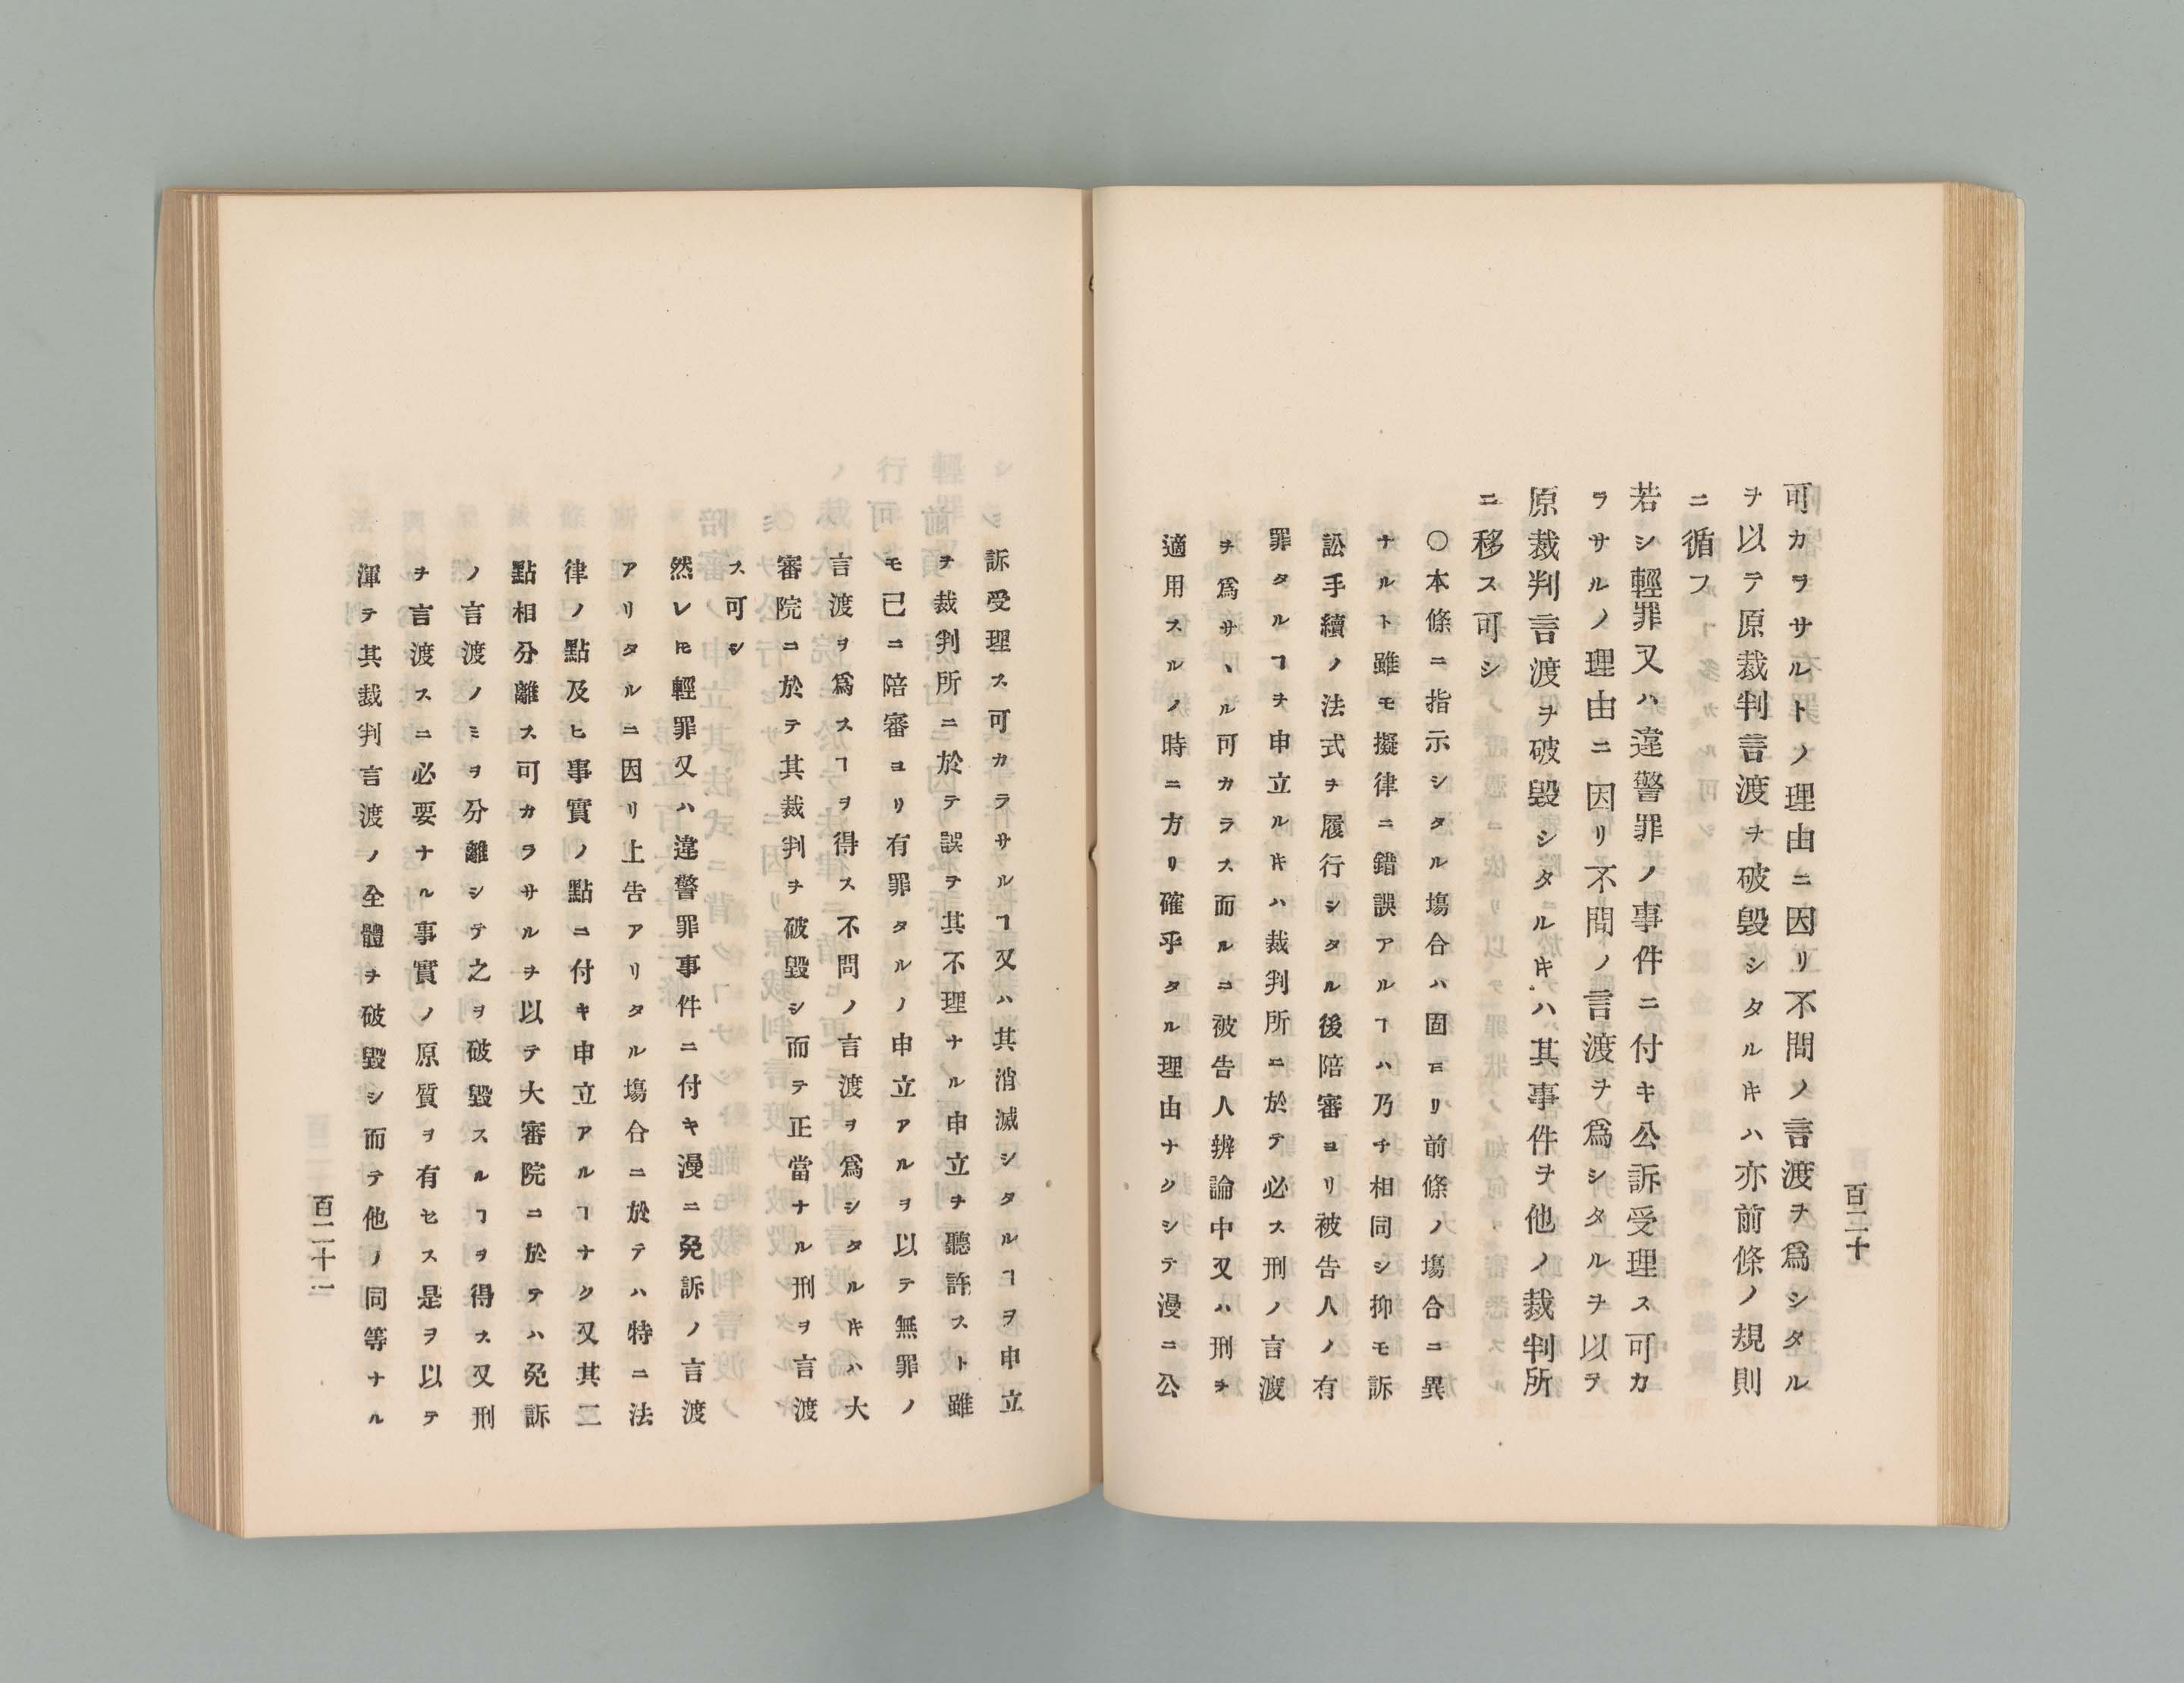 百二十
可カヲサルトノ理由ニ因リ不問ノ言渡ヲ爲シタル
ヲ以テ原裁判言渡ヲ破毀シタルキハ亦前條ノ規則
ニ循フ
若シ輕罪又ハ違警罪ノ事件ニ付キ公訴受理ス可カ
ラサルノ理由ニ因リ不問ノ言渡ヲ爲シタルヲ以テ
原裁判言渡ヲ破毀シタルキハ其事件ヲ他ノ裁判所
ニ移ス可シ
○本條ニ指示シタル塲合ハ固ヨリ前條ノ塲合ニ異
ナルト雖モ擬律ニ錯誤アルヿハ乃チ相同シ抑モ訴
訟手續ノ法式ヲ履行シタル後陪審ヨリ被告人ノ有
罪タルヿヲ申立ルキハ裁判所ニ於テ必ス刑ノ言渡
ヲ爲サヽル可カラス而ルニ被告人辨論中又ハ刑ヲ
適用スルノ時ニ方リ確乎タル理由ナクシテ漫ニ公
訴受理ス可カラサルヿ又ハ其消滅シタルヿヲ申立
ヲ裁判所ニ於テ誤テ其不理ナル申立ヲ聽許スト雖
モ已ニ陪審ヨリ有罪タルノ申立アルヲ以テ無罪ノ
言渡ヲ爲スヿヲ得ス不問ノ言渡ヲ爲シタルキハ大
審院ニ於テ其裁判ヲ破毀シ而テ正當ナル刑ヲ言渡
ス可シ
然レ𪜈輕罪又ハ違警罪事件ニ付キ漫ニ免訴ノ言渡
アリタルニ因リ上告アリタル塲合ニ於テハ特ニ法
律ノ點及ヒ事實ノ點ニ付キ申立アルヿナク又其二
點相分離ス可カラサルヲ以テ大審院ニ於テハ免訴
ノ言渡ノミヲ分離シテ之ヲ破毀スルヿヲ得ス又刑
ヲ言渡スニ必要ナル事實ノ原質ヲ有セス是ヲ以テ
渾テ其裁判言渡ノ全體ヲ破毀シ而テ他ノ同等ナル
百二十一